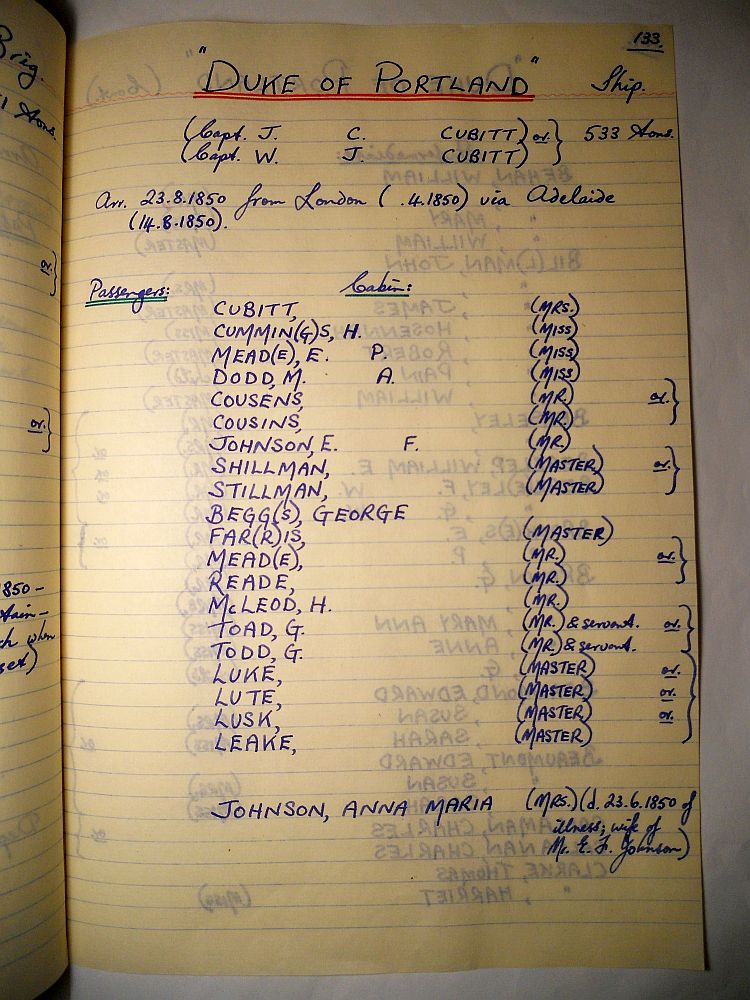 133.
"DUKE OF PORTLAND" Ship.
(Capt. J. C. CUBITT) or } 533 tons.
(Capt. W. J. CUBITT)
Arr. 23.8.1850 from London ( .4.1850) via Adelaide
(14.8.1850).
Passengers: Cabin:
CUBITT, (MRS.)
CUMMIN(G)S, H. (MISS)
MEAD(E), E. P. (MISS)
DODD, M. A. (MISS)
COUSENS, (MR.) or. }
COUSINS, (MR.)
JOHNSON, E. F. (MR.)
SHILLMAN, (MASTER) or. }
STILLMAN, (MASTER)
BEGG(S), GEORGE
FAR(R)IS, (MASTER)
MEAD(E), (MR.) or. }
READE, (MR.)
McLEOD, H. (MR.)
TOAD, G. (MR.) & servant. or. }
TODD, G. (MR.) & servant.
LUKE, (MASTER) or. }
LUTE, (MASTER) or.
LUSK, (MASTER) or.
LEAKE, (MASTER)
JOHNSON, ANNA MARIA (MRS.) (d. 23.6.1850 of
illness; wife of
Mr. E. F. Johnson)
Brig.
tons.
or. }
or. }
1850-
tain-
ch when
set)